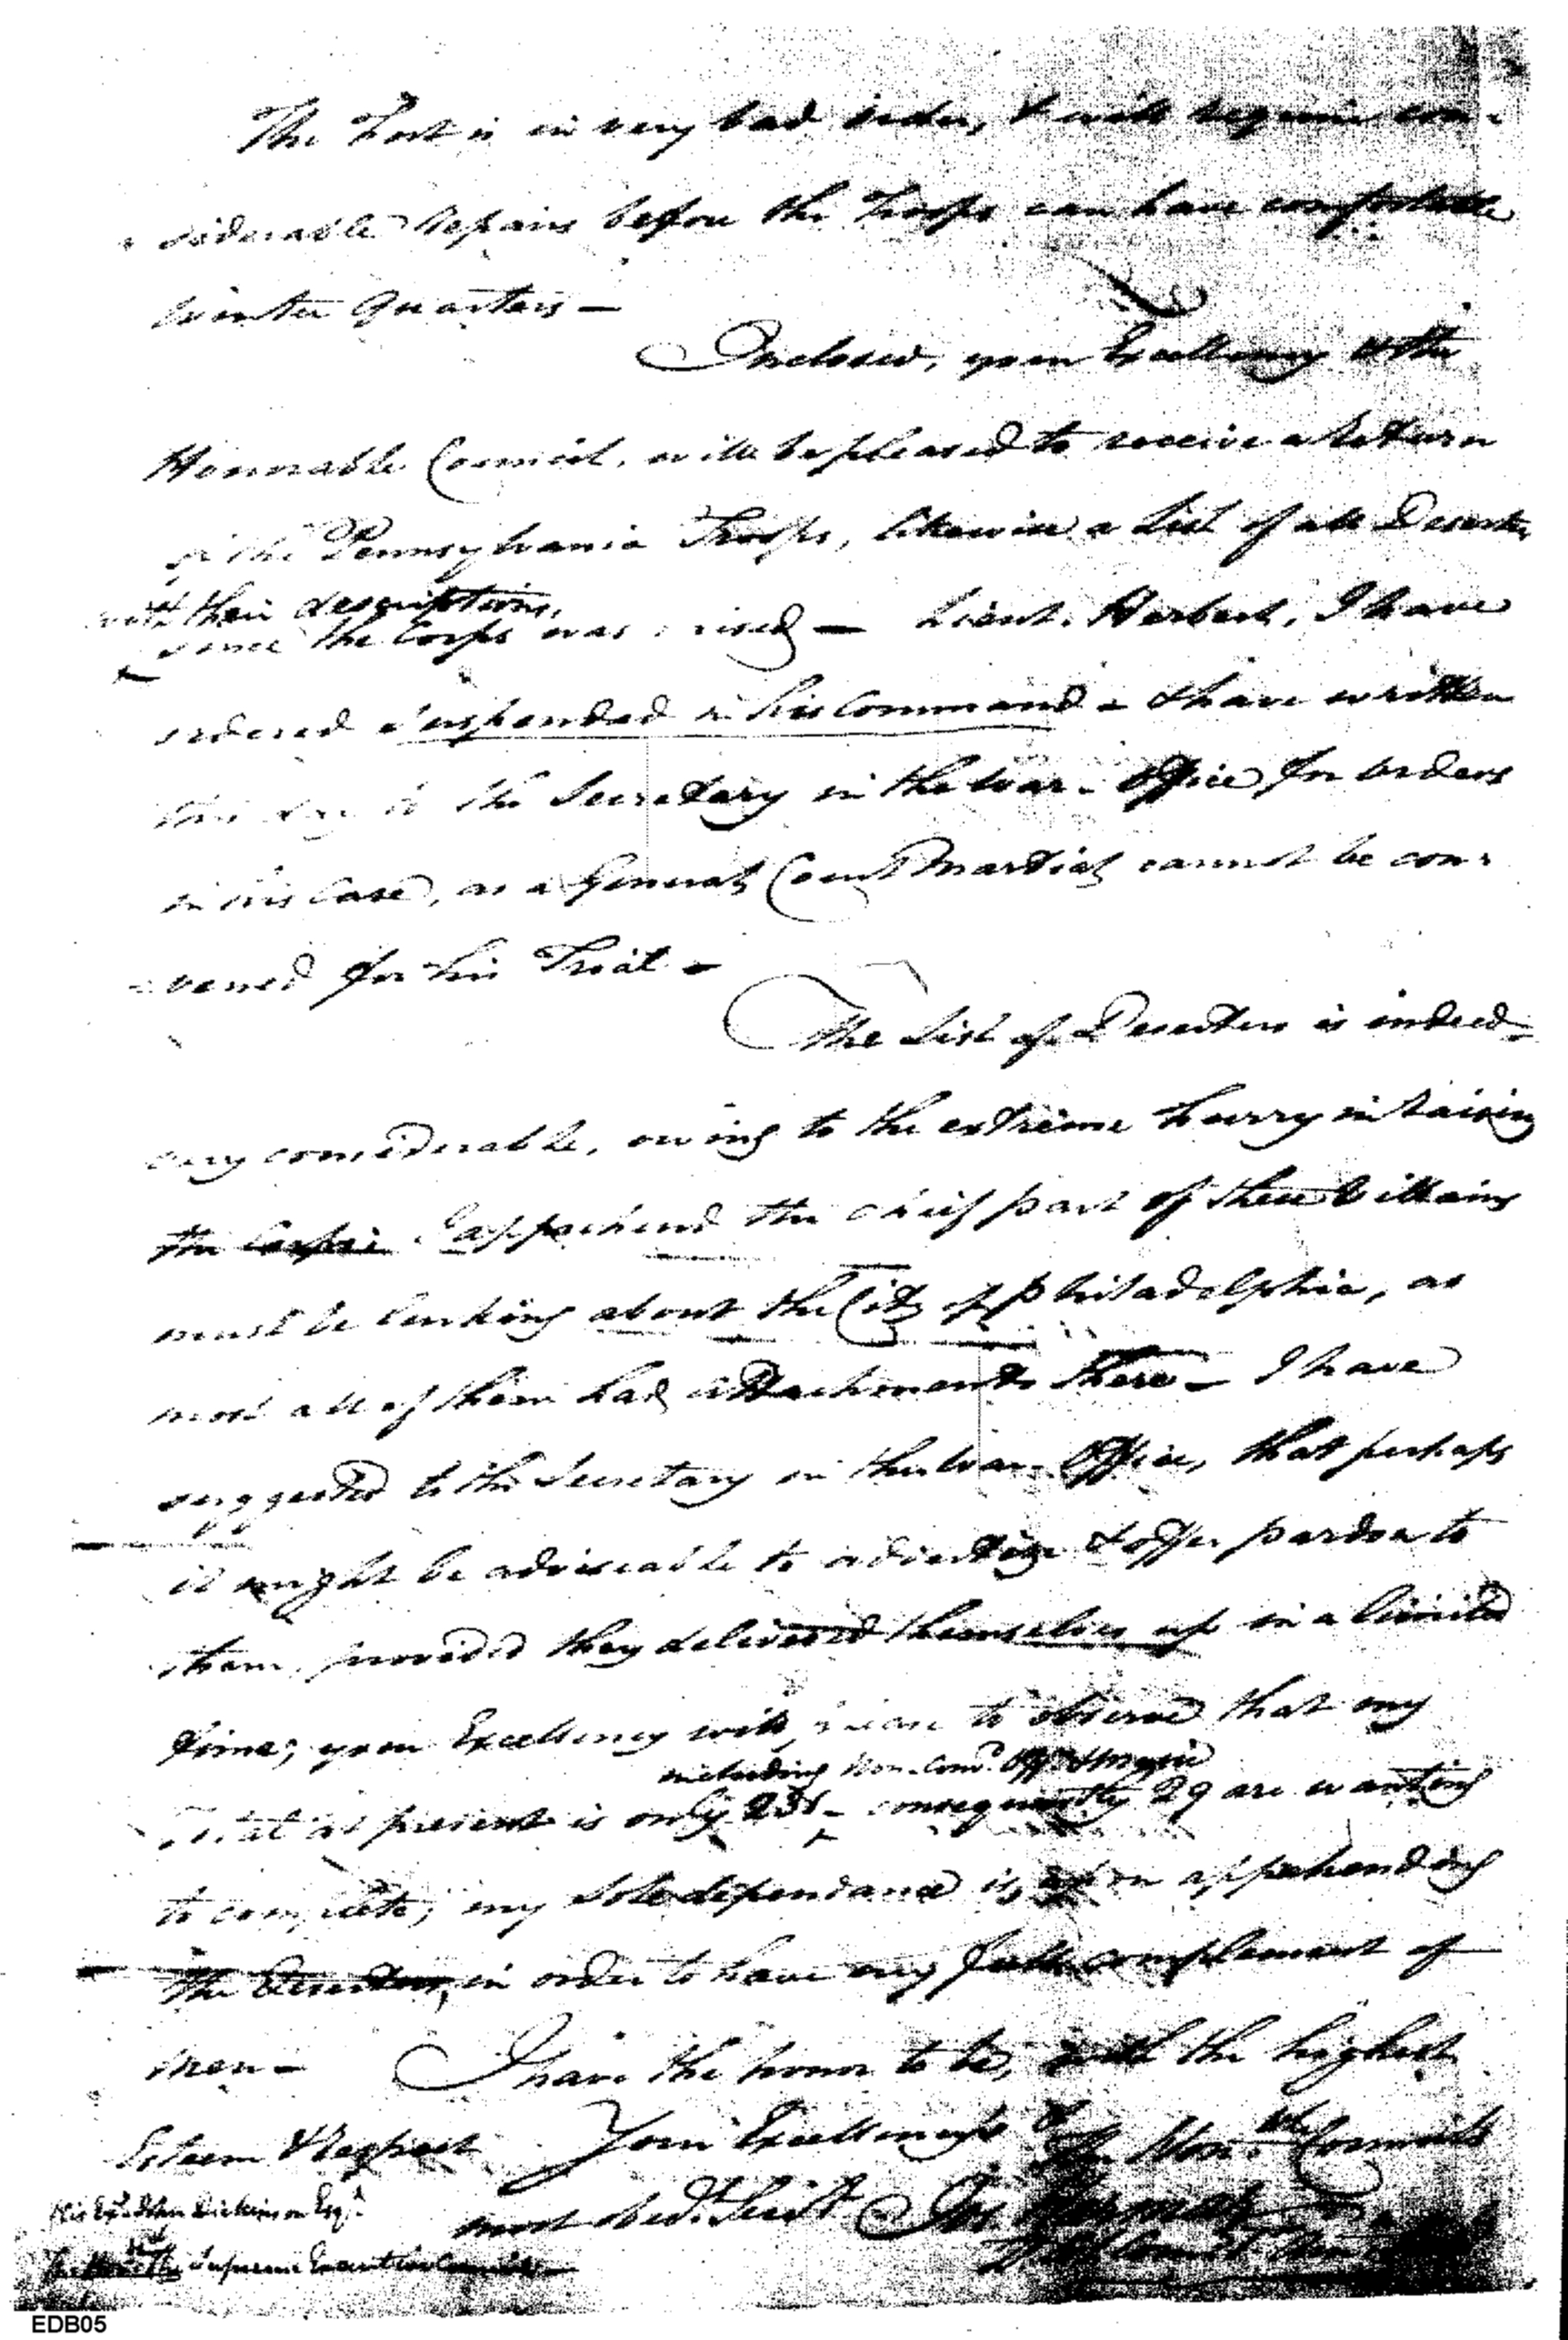 The Fort is in very bad order, & will require con-
siderable Repairs before the Troops can have comfortable
Winter Quarters —
Inclosed, your Excellency & the
Honorable Council, will be pleased to receive a Return
of the Pennsylvania Troops, likewise a List of all Deserters
with their descriptions,
since the Corps was raised — Lieut. Herbert, I have
ordered suspended in his Command & have written
this day to the Secretary in the War-Office for orders
in his Case, as a General Court Martial cannot be con-
-vened for his Trial —
The List of Deserters is indeed
very considerable, owing to the extreme hurry in raising
the Corps. I apprehend the chief part of these Villains
must be lurking about the City of Philadelphia, as
most all of them had attachments there — I have
suggested to the Secretary in the War-Office, that perhaps
it might be adviseable to advertize & offer pardon to
them, provided they delivered themselves up in a limited
time; your Excellency will please to observe that my
including Non-Comd. Offrs & Musick
Total at present is only 231 — consequently 29 are wanting
to complete; my sole dependance is upon apprehending
the Deserters, in order to have my full complement of
Men — I have the honor to be, with the highest
Esteem & Respect Your Excellency's & The Honble Councils
most obedt. Servt. Jos Harmar
His Exy. John Dickinson Esqr.
and
The Honble the Supreme Executive Council
EDB05